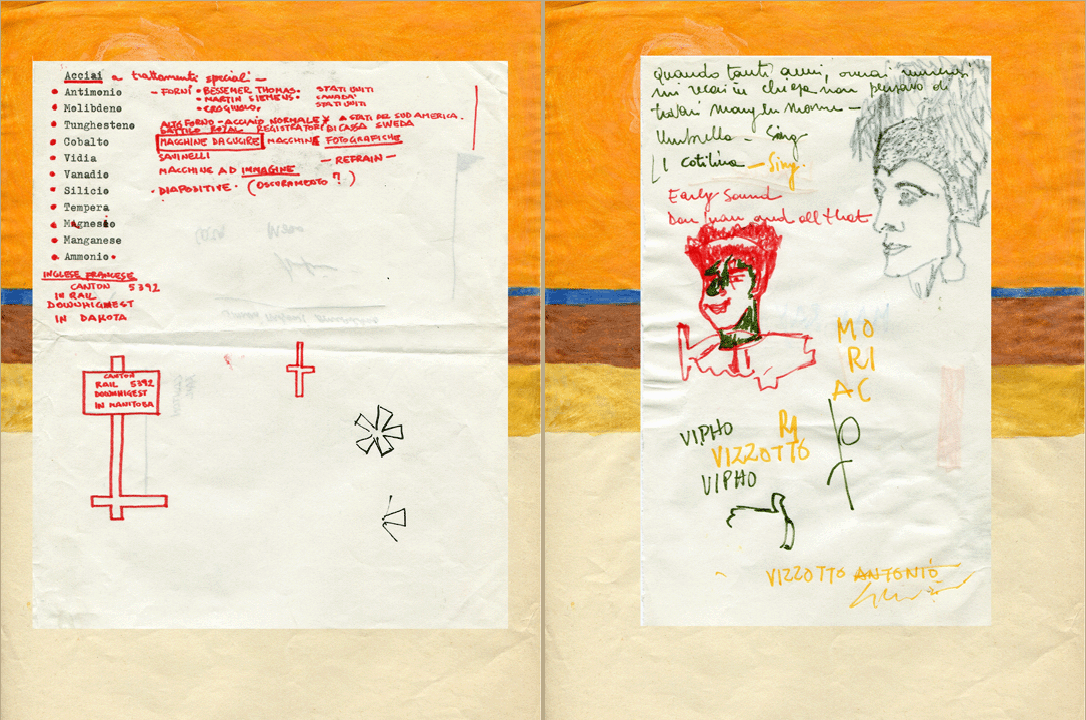 Acciai a trattamenti speciali -
Antimonio
- FORNI • BESSEMER THOMAS. STATI UNITI
• MARTIN SIEMENS. CANADA'
• CROGIUOLO, STATI UNITI
Molibdeno
Tunghesteno
ALTO FORNO - ACCIAIO NORMALE STATI DEL SUD AMERICA.
ROYAL REGISTRATORI DI CASSA SWEDA
Cobalto
MACCHINE DA CUCIRE MACCHINE FOTOGRAFICHE
Vidia
SAVINELLI
- REFRAIN -
Vanadio
MACCHINE AD IMMAGINE
Silicio
• DIAPOSITIVE • (OSCURAMENTO ?)
Tempera
Magnesio
Manganese
Ammonio
INGLESE FRANCESE
CANTON 5392
IN RAIL
DOWNHIGHEST
IN DAKOTA
CANTON
RAIL 5392
DOWNHIGEST
IN MANITOBA
quando tanti anni, ormai
mi recai in chiesa non pensavo di
Umbrella - Sing
I cotilina - Sing.
Early Sound
Don juan and all that
MO
RI
AC
VIPHO
VIZZOTTO
VIPHO
VIZZOTTO ANTONIO